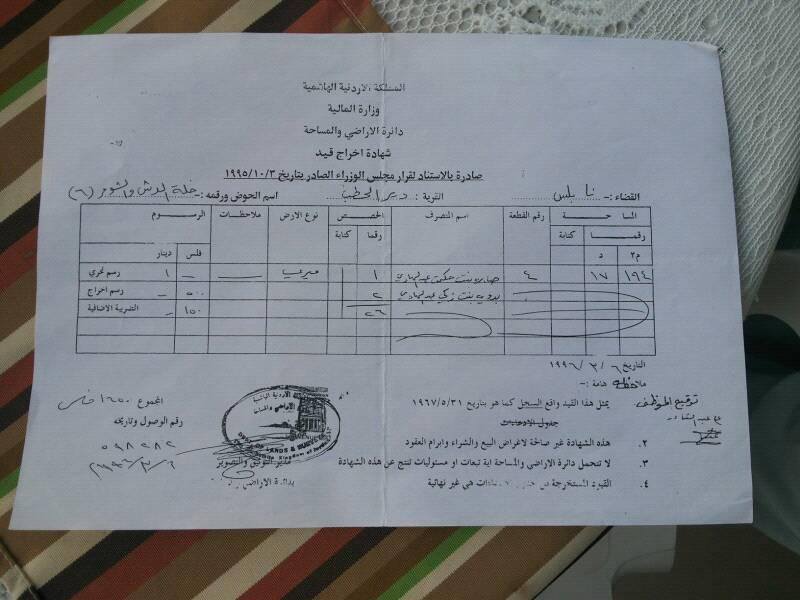 المملكة الاردنية الهاشمية
وزارة المالية
دائرة الاراضي والمساحة
شهادة اخراج قيد
صادرة بالاستناد لقرار مجلس الوزراء الصادر بتاريخ ١٩٩٥/١٠/٣
القضاء :- نابلس القرية : دير الحطب اسم الحوض ورقمه :- خلة (٦)
المساحة رقم القطعة اسم المتصرف الحصص نوع الارض ملاحظات الرسوم
رقما كتابة رقما كتابة
م٢ د فلس دينار
١٩٤ ١٧ ٤ بنت حكمت عبدالهادي ١ ميري — — ١ رسم تحري
بدويه بنت زكي عبدالهادي ٢ ٥٠٠ — رسم اخراج
٢٦ ١٥٠ — الضريبة الاضافية
التاريخ ٦ / ٣ / ١٩٩٦
ملاحظة هامة :-
يمثل هذا القيد واقع السجل كما هو بتاريخ ١٩٦٧/٥/٣١
توقيع الموظف
٢. هذه الشهادة غير صالحة لاغراض البيع والشراء وابرام العقود
٣. لا تتحمل دائرة الاراضي والمساحة اية تبعات او مسئوليات تنتج عن هذه الشهادة
٤. القيود المستخرجة من هي غير نهائية
المجموع ١٦٥٠ فلس
رقم الوصول وتاريخه
٥٩٨٢٨٢
مدير التوثيق والتصوير
بدائرة الاراضي